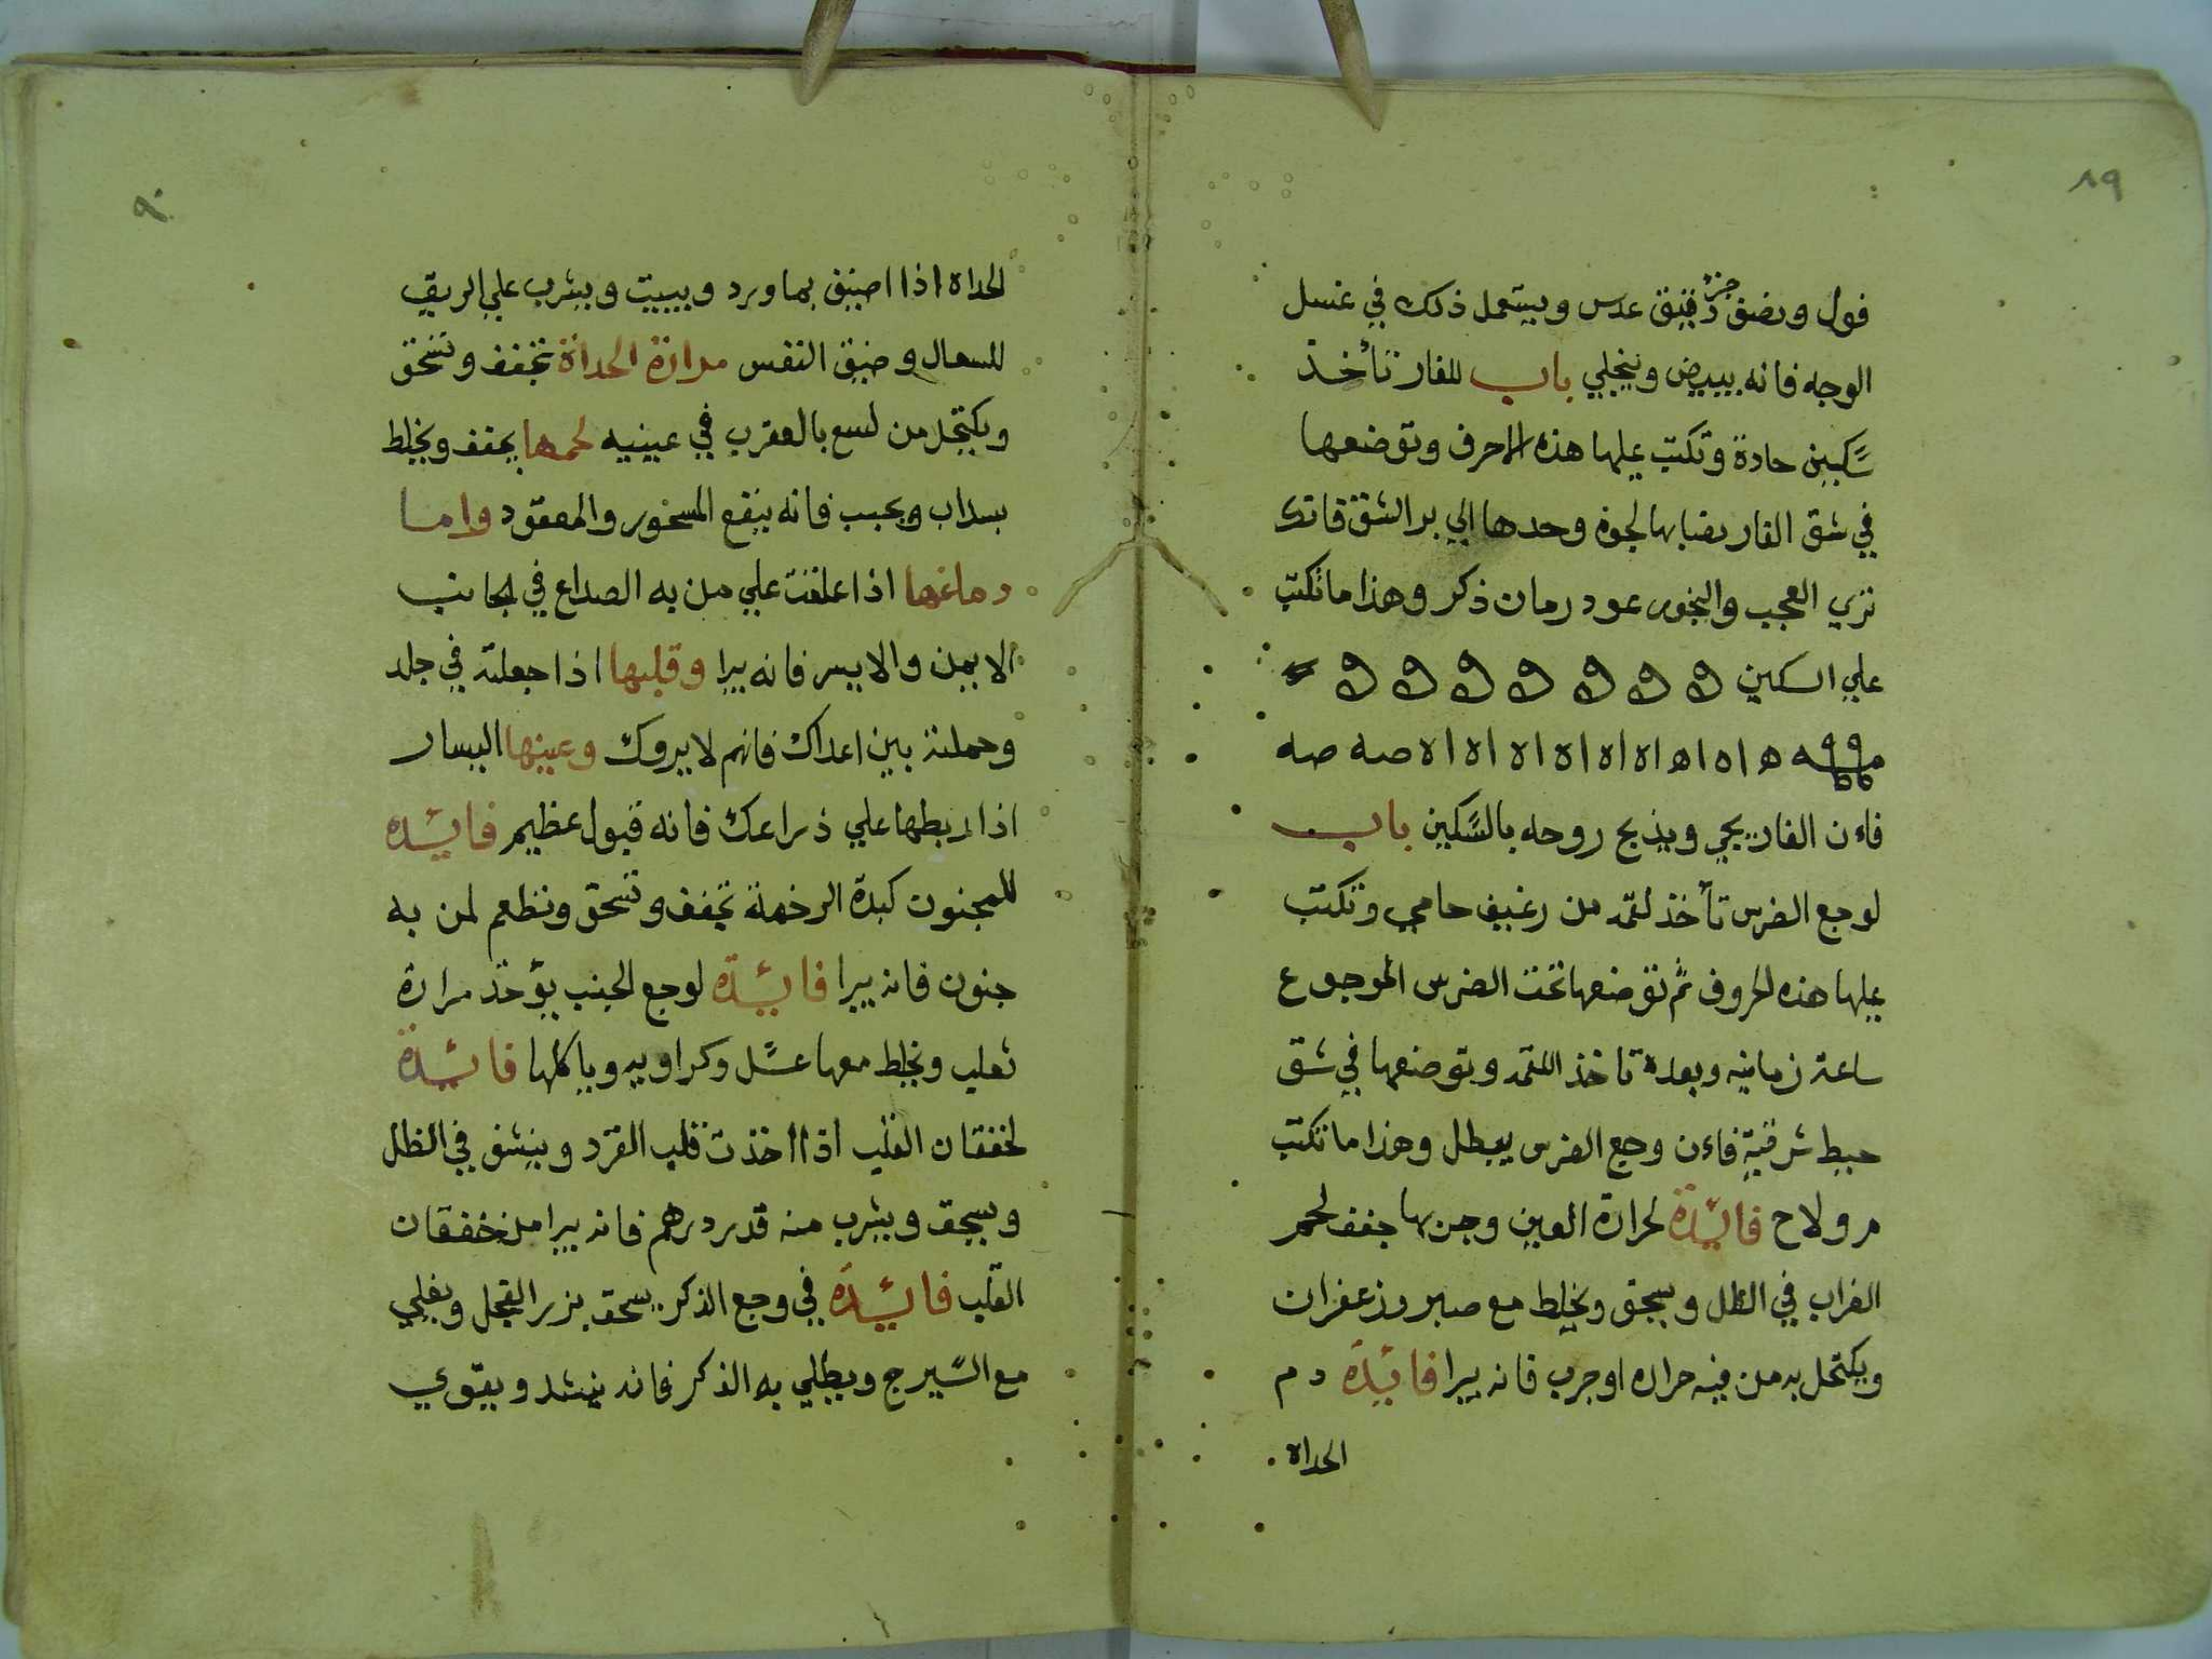 ٨٩
فول ونصف جزؤ دقيق عدس ويستعمل ذلك في غسل
الوجه فانه يبيض وينجلي باب للفار تأخذ
سكين حادة وتكتب عليها هذه الاحرف وتوضعها
في شق الفار نصابها لجوه وحدها الي برا الشق فانك
تري العجب والبخور عود رمان ذكر وهذا ما تكتب
علي السكين
ه اه اه اه اه اه اه اه اه صه صه
فاءن الفار يجي ويذبح روحه بالسكين باب
لوجع الضرس تأخذ لقمه من رغيف حامي وتكتب
عليها هذه الحروف ثم توضعها تحت الضرس الموجوع
ساعة زمانيه وبعده تاخذ اللقمه وتوضعها في شق
حيط شرقية فاءن وجع الضرس يبطل وهذا ما تكتب
م ولاح فائدة لحرارة العين وجربها جفف لحم
الغراب في الظل ويسحق ويخلط مع صبر وزعفران
ويكتحل به من فيه حراره او جرب فانه يبرا فائدة دم
الحداة
٩٠
الحداة اذا اضيف بماورد ويبيت ويشرب علي الريق
للسعال وضيق النفس مرارة الحدأة تجفف وتسحق
ويكتحل من لسع بالعقرب في عينيه لحمها يجفف ويخلط
بسداب ويحبب فانه ينفع المسحور والمعقود واما
دماغها اذا علقت علي من به الصداع في الجانب
الايمن والايسر فانه يبرا وقلبها اذا جعلته في جلد
وحملته بين اعداك فانهم لا يروك وعينها اليسار
اذا ربطها علي ذراعك فانه قبول عظيم فائده
للمجنون كبدة الرخمة تجفف وتسحق وتطعم لمن به
جنون فانه يبرا فائدة لوجع الجنب يؤخذ مرارة
ثعلب ويخلط معها عسل وكراويه وياكلها فائدة
لخفقان القلب اذا اخذت قلب القرد وينشف في الظل
ويسحق ويشرب منه قدر درهم فانه يبرا من خفقان
القلب فائدة في وجع الذكر يسحق بزر الفجل ويغلي
مع السيرج ويطلي به الذكر فانه ينشد ويقوي